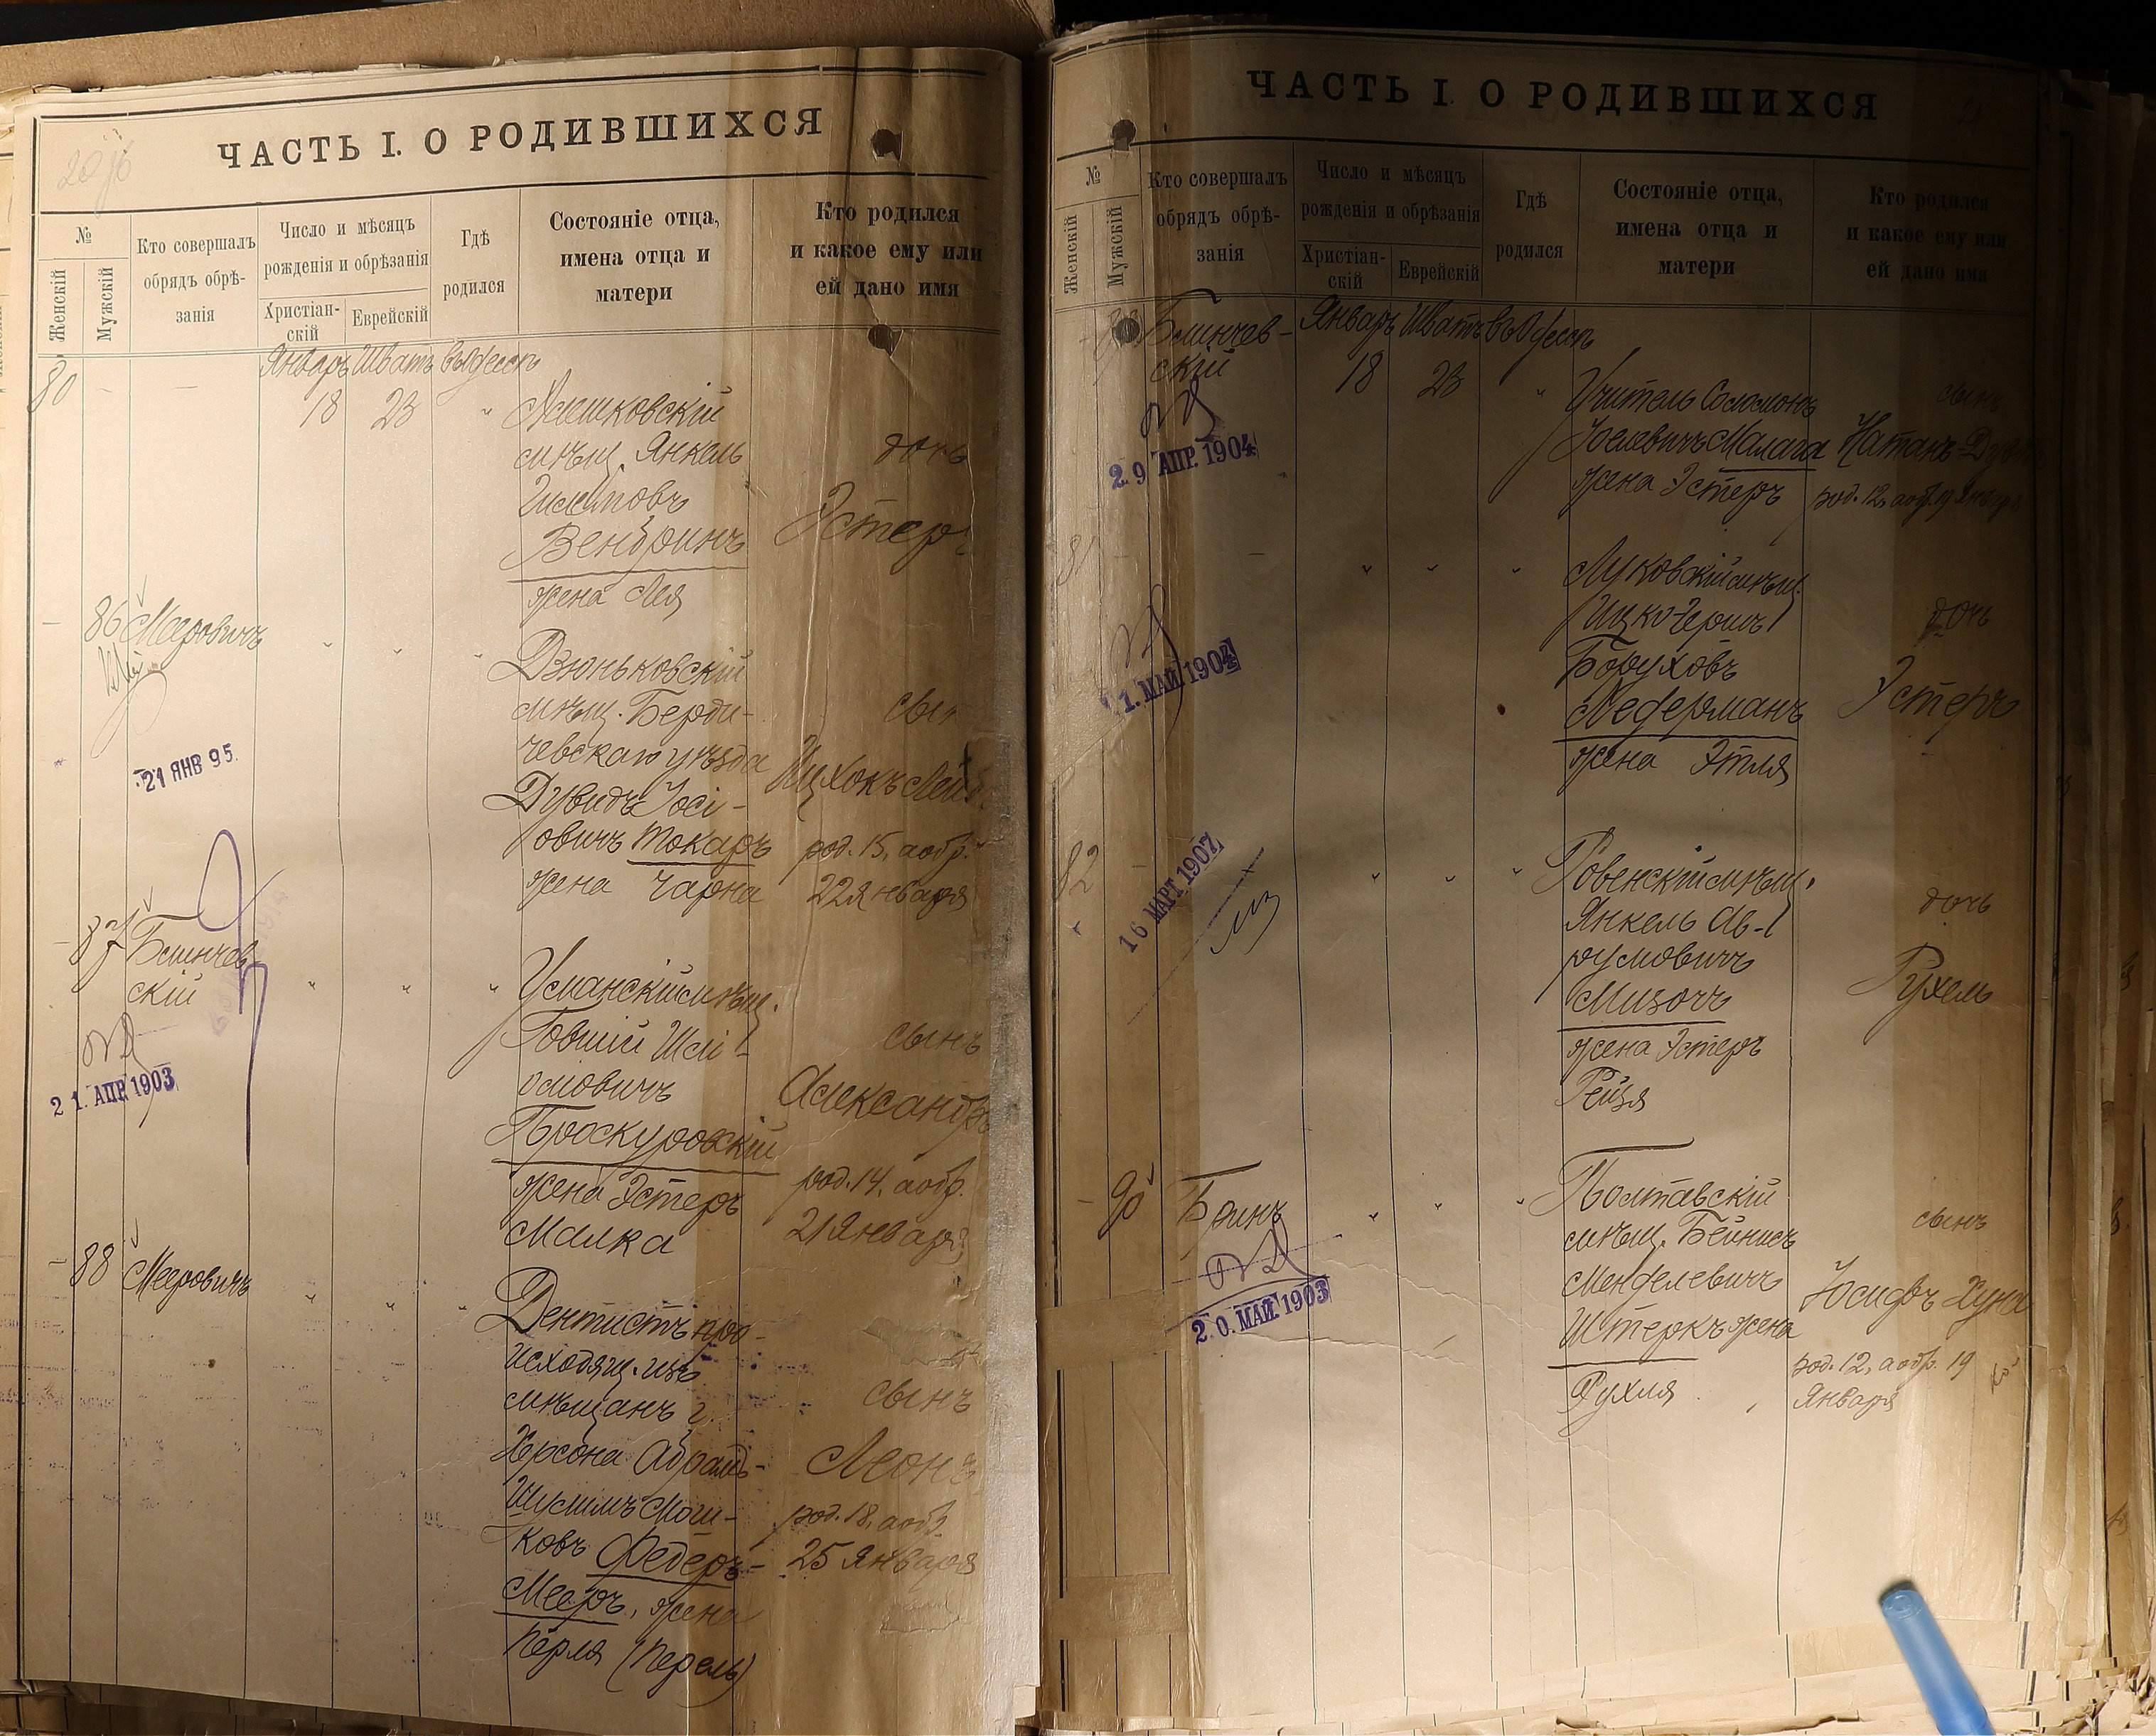 ЧАСТЬ I. О РОДИВШИХСЯ
№
Женскій
Мужскій
Кто совершалъ
обрядъ обрѣ-
занія
Число и мѣсяцъ
рожденія и обрѣзанія
Христіан-
скій
Еврейскій
Гдѣ
родился
Состояніе отца,
имена отца и
матери
Кто родился
и какое ему или
ей дано имя
80 - - Январь Шватъ въ Одессѣ
18 23 "
мѣщ. Янкель
Вендринъ
жена Лея
дочь
Эстеръ
- 86 Мееровичъ " " "
21 ЯНВ 95.
Дзюньковскій
мѣщ. Берди-
чевскаго уѣзда
Дувидъ Іосі-
овичъ Токарь
жена Чарна
сынъ
Ицхокъ Лейб
род. 15, а обр.
22 Января
- 87 Блинчев
скій
" " "
21. АПР. 1903
Уманскій мѣщ.
Говшій Шлі-
омовичъ
Проскуровскій
жена Эстеръ
Малка
сынъ
Александръ
род. 14, а обр.
21 Января
- 88 Мееровичъ " " "
Дентистъ про-
исходящ. изъ
мѣщанъ г.
Херсона Абрамъ-
Шулимъ Мош-
ковъ Федеръ-
Мееръ, жена
Перля (Перель)
сынъ
Леонъ
род. 18, а обр.
25 Января
ЧАСТЬ I. О РОДИВШИХСЯ
№
Женскій
Мужскій
Кто совершалъ
обрядъ обрѣ-
занія
Число и мѣсяцъ
рожденія и обрѣзанія
Христіан-
скій
Еврейскій
Гдѣ
родился
Состояніе отца,
имена отца и
матери
Кто родился
и какое ему или
ей дано имя
Блинчев-
скій
Январь Шватъ въ Одессѣ
18 23 "
29 АПР. 1904
Учитель Соломонъ
Іоселевичъ Малага
жена Эстеръ
сынъ
Натанъ-
род. 12, а обр. 19 Января
81 - - " " "
1. МАЙ 1904
Луковскій мѣщ.
Ицко-Гершъ
Боруховъ
Ледерманъ
жена Этля
дочь
Эстеръ
82 - " " "
16 МАРТ 1907
Ровенскій мѣщ.
Янкель Ав-
румовичъ
Мизочъ
жена Эстеръ
Рейзя
дочь
Рухель
- 90 Бринъ " " "
20. МАЙ 1903
Полтавскій
мѣщ. Бейнисъ
Менделевичъ
Штеркъ жена
Рухля
сынъ
Іосифъ Хуна
род. 12, а обр. 19
Января